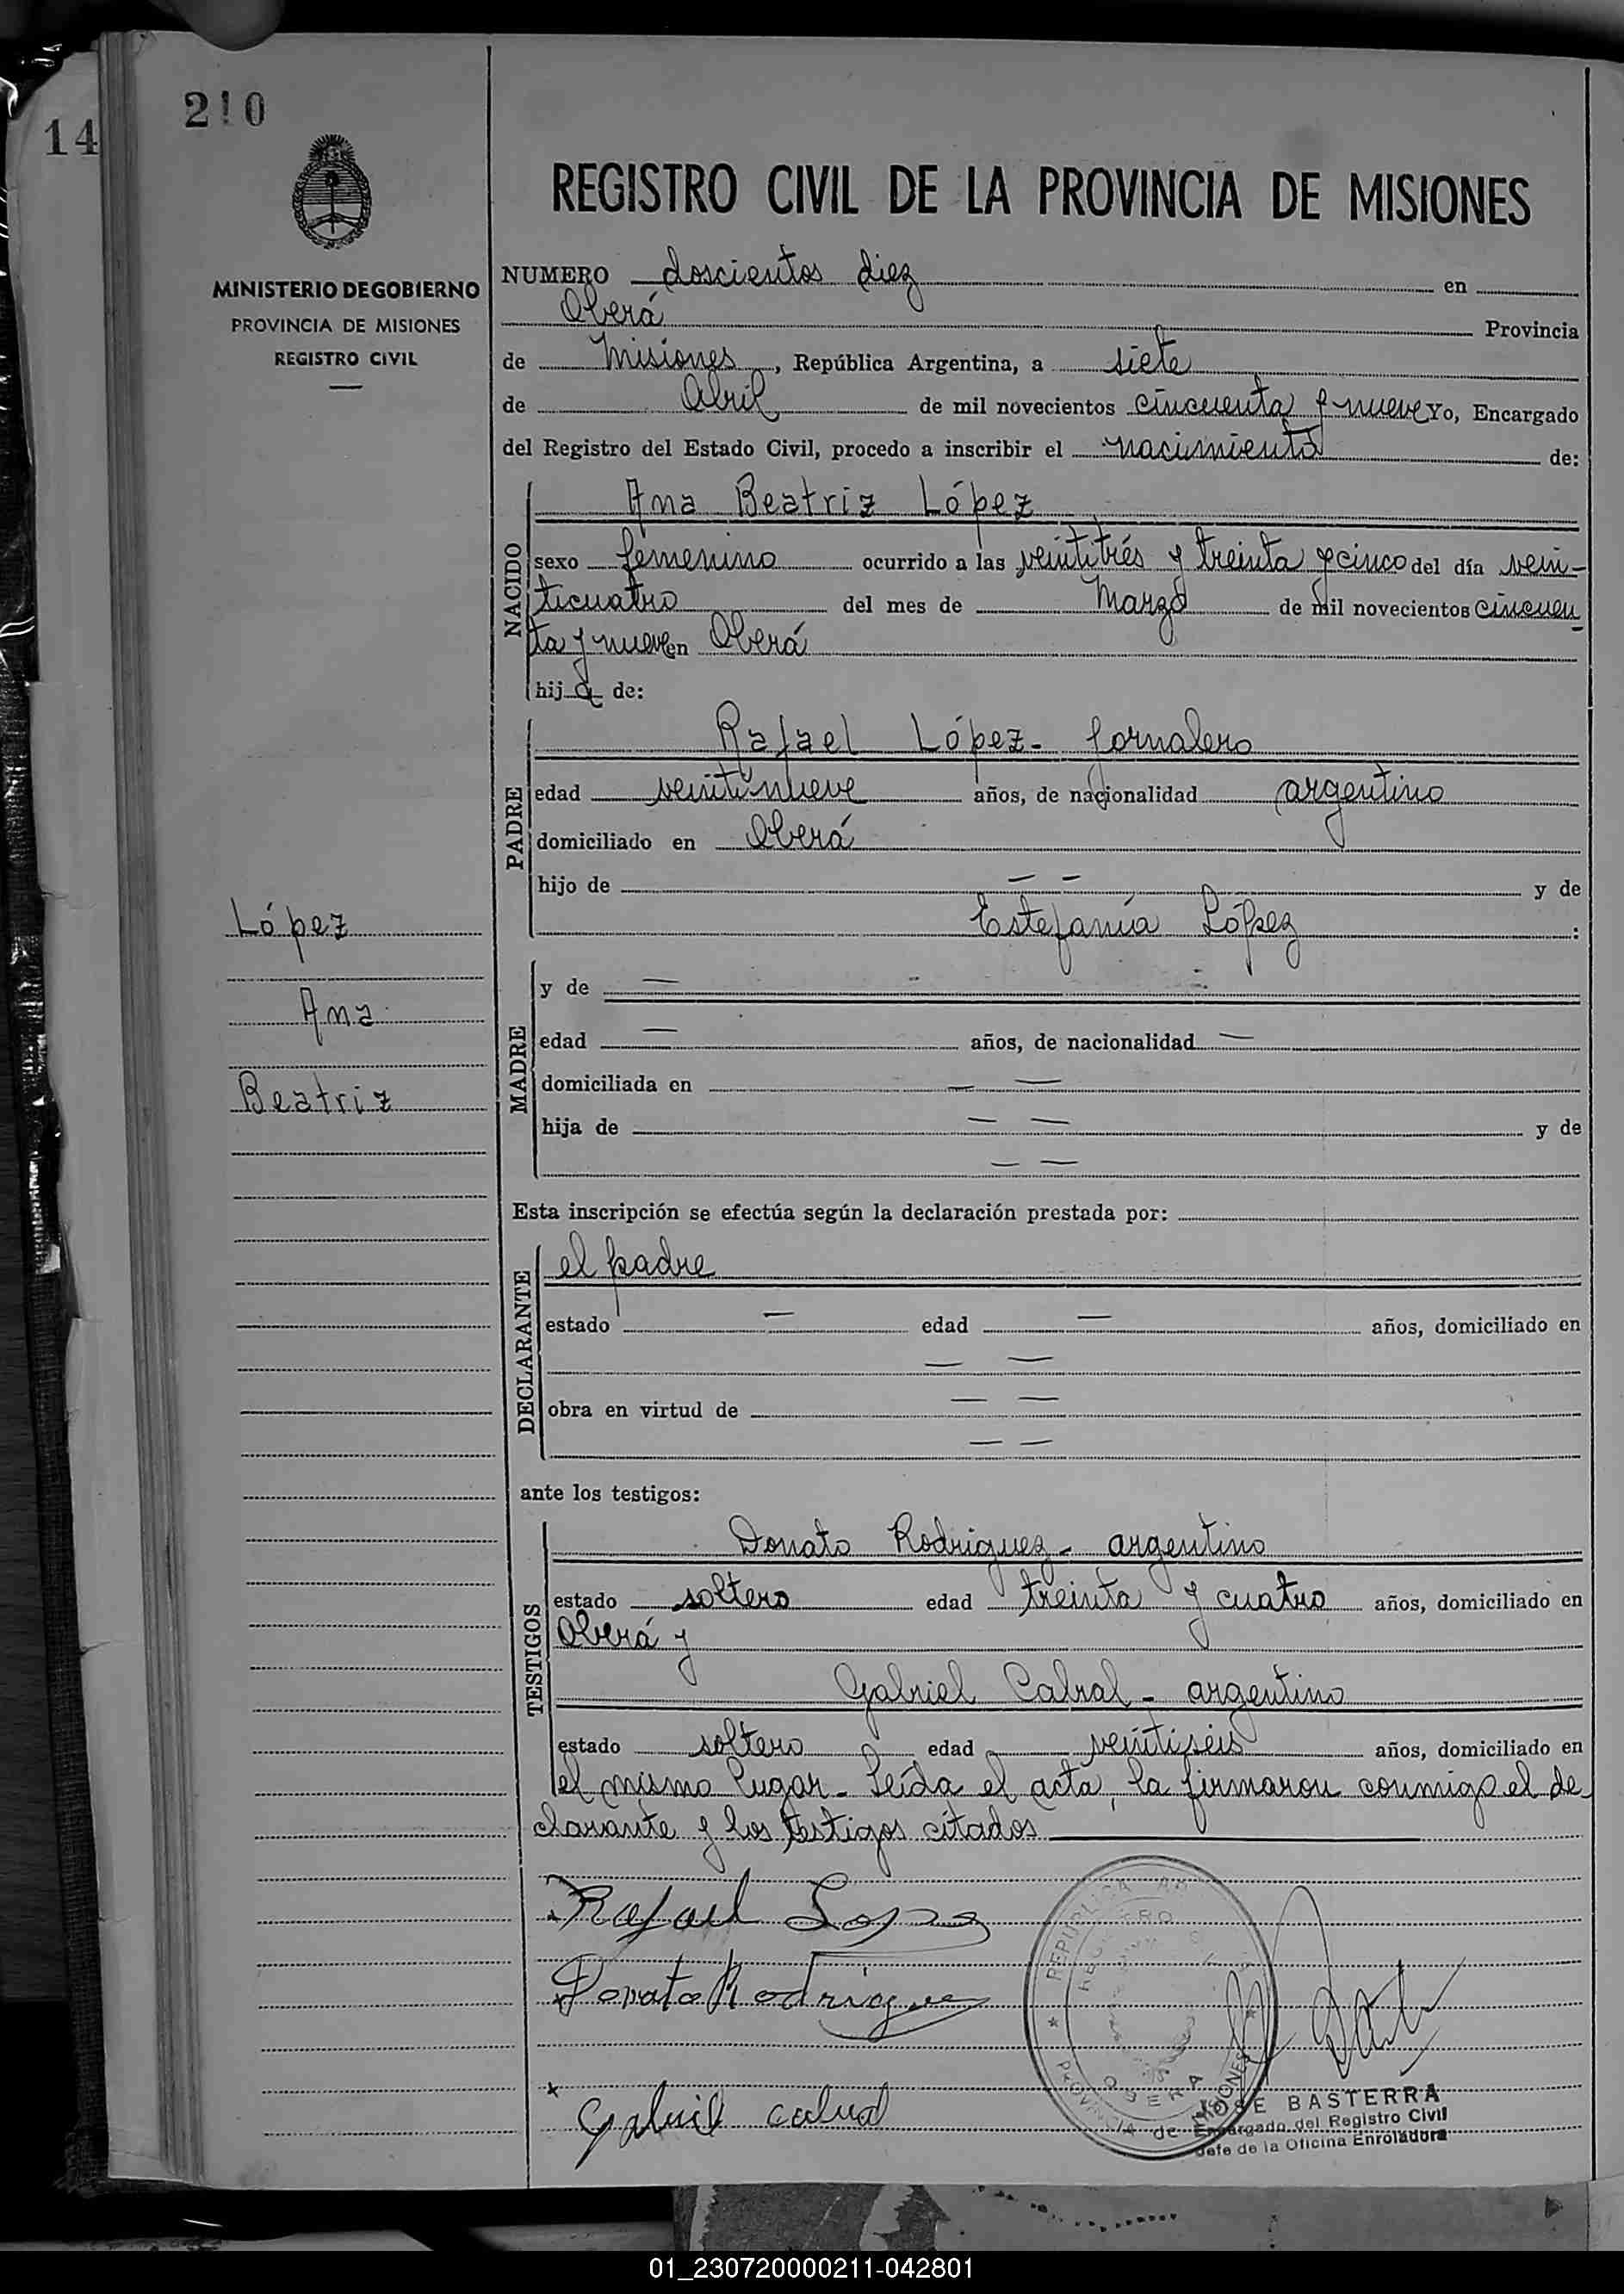 14
210
MINISTERIO DE GOBIERNO
PROVINCIA DE MISIONES
REGISTRO CIVIL
López
Ana
Beatriz
REGISTRO CIVIL DE LA PROVINCIA DE MISIONES
NUMERO doscientos diez en
Oberá Provincia
de Misiones, República Argentina, a siete
de Abril de mil novecientos cincuenta y nueve Yo, Encargado
del Registro del Estado Civil, procedo a inscribir el nacimiento de:
NACIDO
Ana Beatriz López
sexo femenino ocurrido a las veintitrés y treinta y cinco del día vein-
ticuatro del mes de Marzo de mil novecientos cincuen-
ta y nueve en Oberá
hija de:
PADRE
Rafael López- Jornalero
edad veintinueve años, de nacionalidad argentino
domiciliado en Oberá
hijo de — — y de
Estefanía López :
MADRE
y de —
edad — años, de nacionalidad —
domiciliada en — —
hija de — — y de
— —
Esta inscripción se efectúa según la declaración prestada por:
DECLARANTE
el padre
estado — edad — años, domiciliado en
— —
obra en virtud de — —
— —
ante los testigos:
TESTIGOS
Donato Rodriguez- argentino
estado soltero edad treinta y cuatro años, domiciliado en
Oberá y
Gabriel Cabral- argentino
estado soltero edad veintiséis años, domiciliado en
el mismo lugar- Leída el acta, la firmaron conmigo el de-
clarante y los testigos citados
Rafael Lopez
Donato Rodriguez
Gabriel Cabral
REPUBLICA AR
REGISTRO CIVIL
OBERA
PROVINCIA de MISIONES
JOSE BASTERRA
Encargado del Registro Civil
Jefe de la Oficina Enroladora
01_230720000211-042801